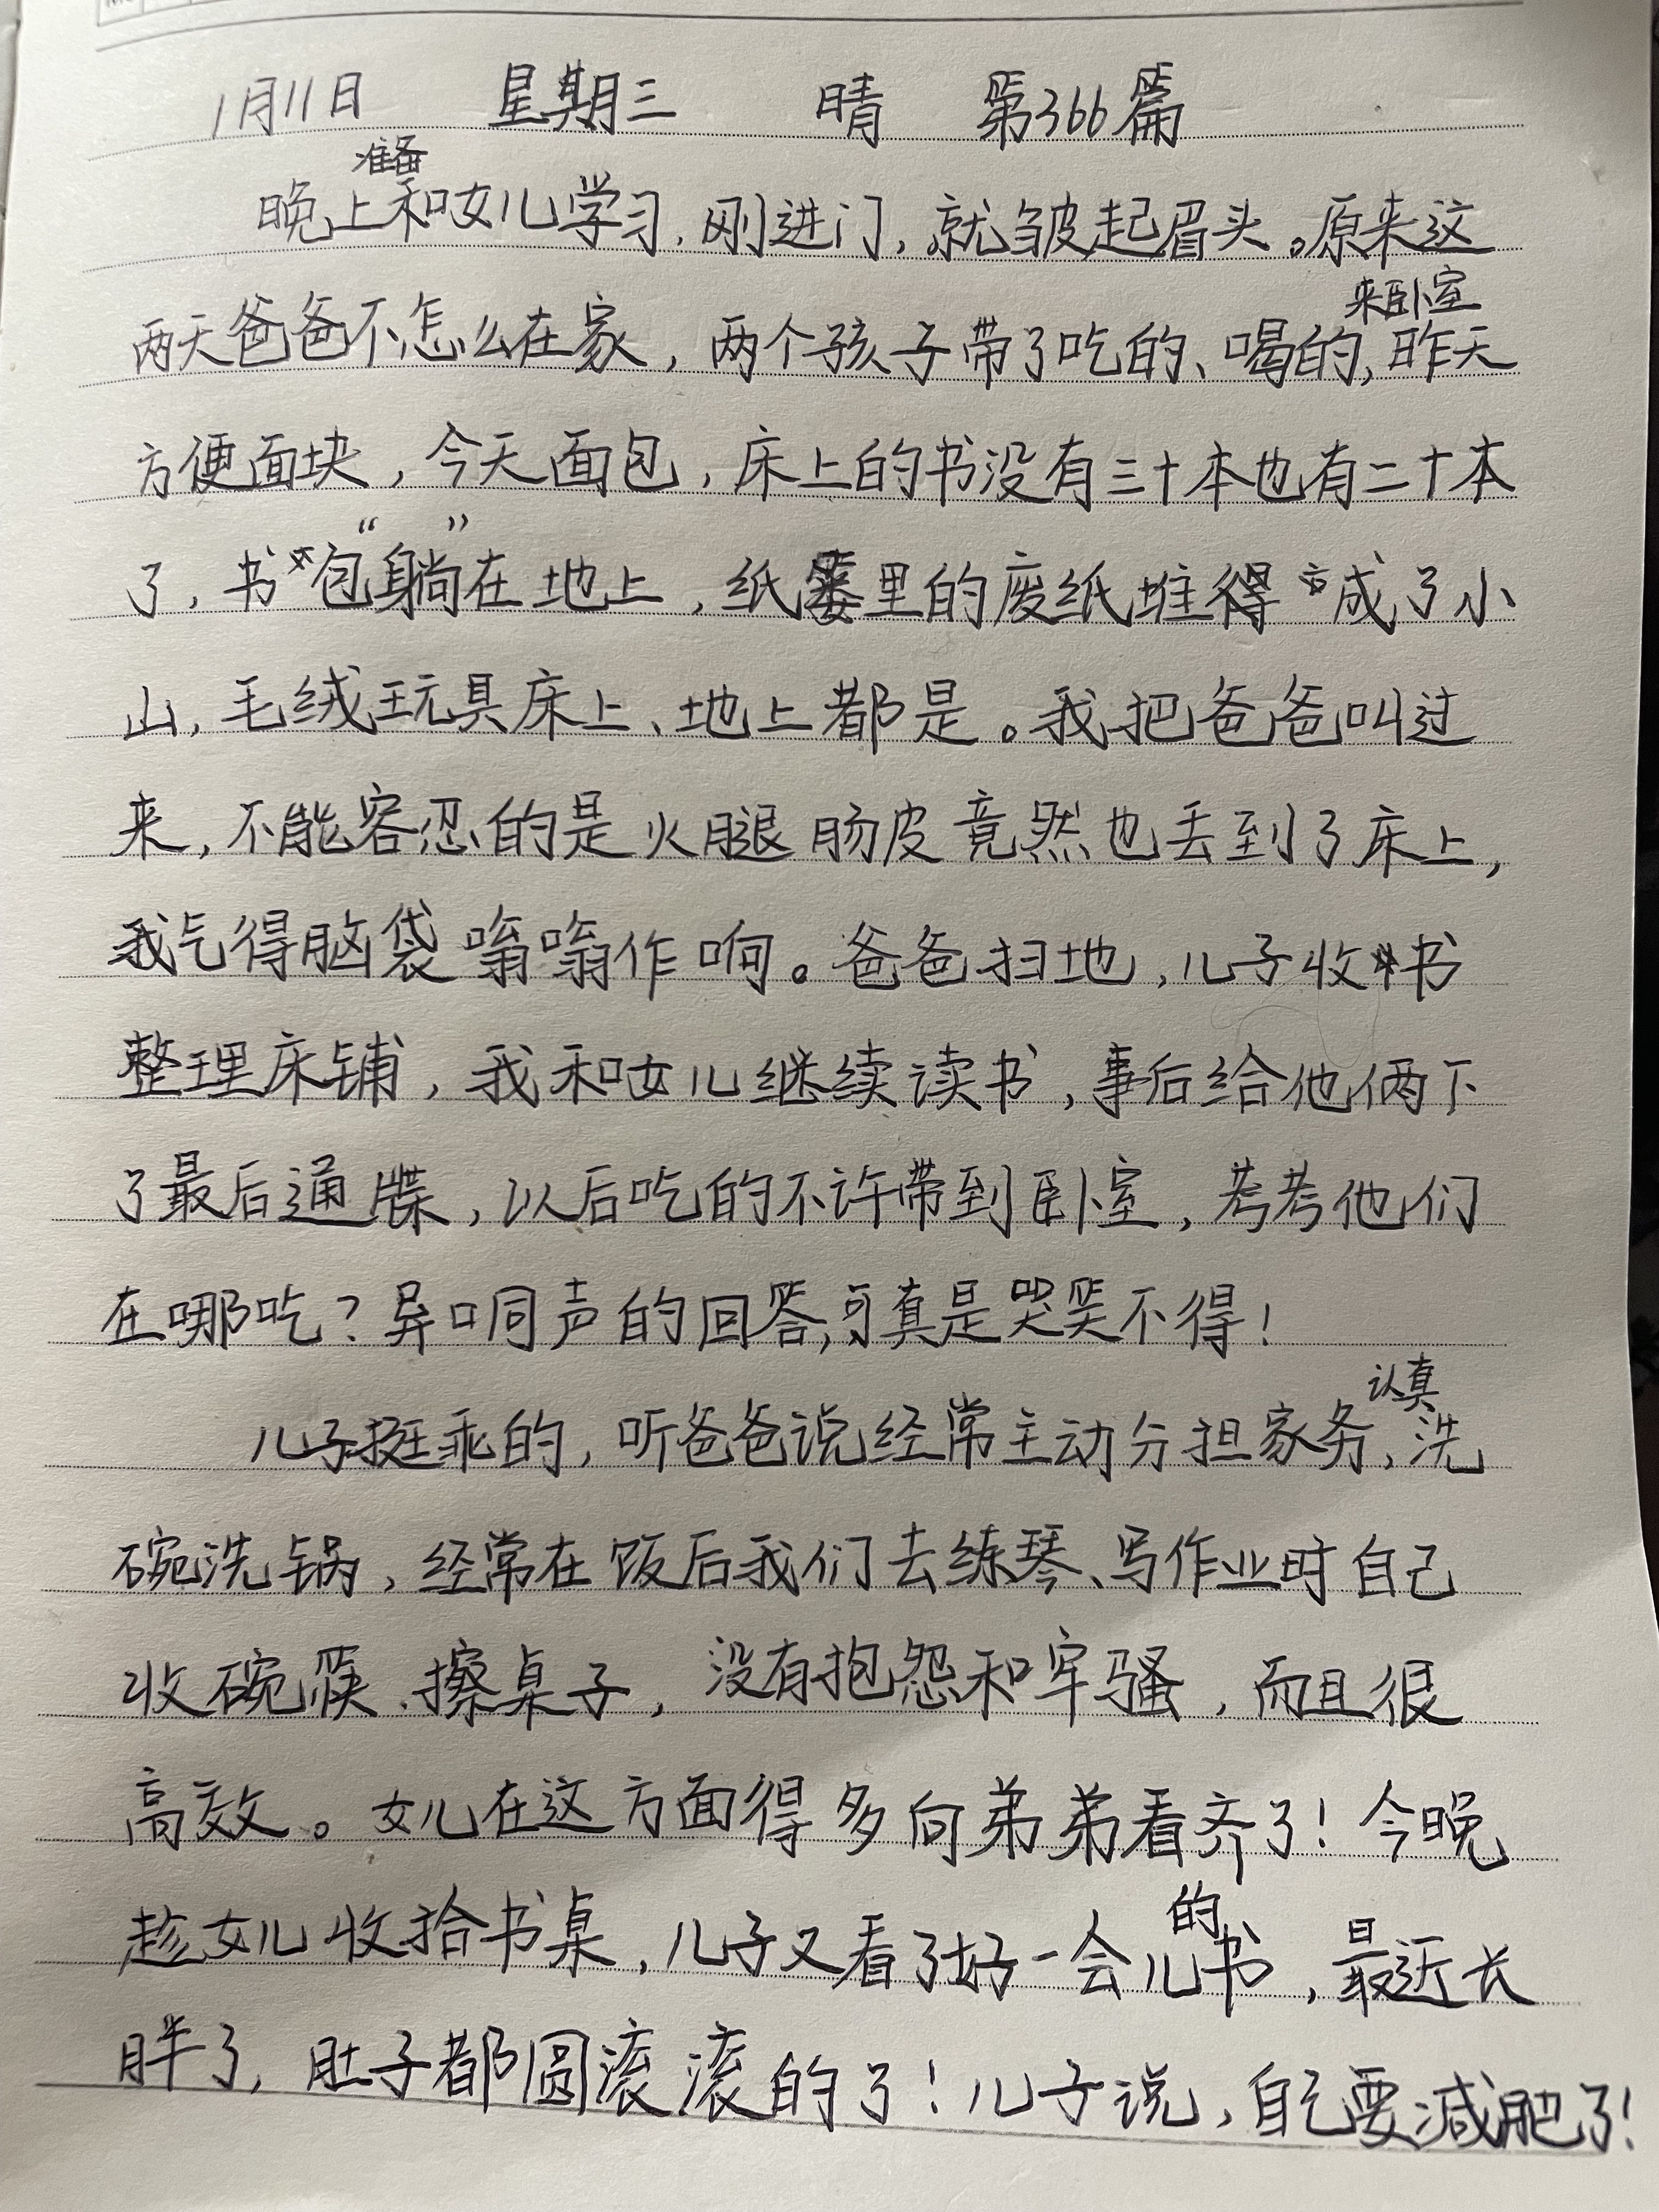 1月11日 星期三 晴 第366篇
晚上准备和女儿学习,刚进门,就皱起眉头。原来这
两天爸爸不怎么在家,两个孩子带了吃的、喝的来卧室,昨天
方便面块,今天面包,床上的书没有三十本也有二十本
了,书包“躺”在地上,纸篓里的废纸堆得成了小
山,毛绒玩具床上、地上都是。我把爸爸叫过
来,不能容忍的是火腿肠皮竟然也丢到了床上,
我气得脑袋嗡嗡作响。爸爸扫地,儿子收书
整理床铺,我和女儿继续读书,事后给他俩下
了最后通牒,以后吃的不许带到卧室,考考他们
在哪吃?异口同声的回答,可真是哭笑不得!
儿子挺乖的,听爸爸说经常主动分担家务,认真洗
碗洗锅,经常在饭后我们去练琴、写作业时自己
收碗筷、擦桌子,没有抱怨和牢骚,而且很
高效。女儿在这方面得多向弟弟看齐了!今晚
趁女儿收拾书桌,儿子又看了好一会儿的书,最近长
胖了,肚子都圆滚滚的了!儿子说,自己要减肥了!